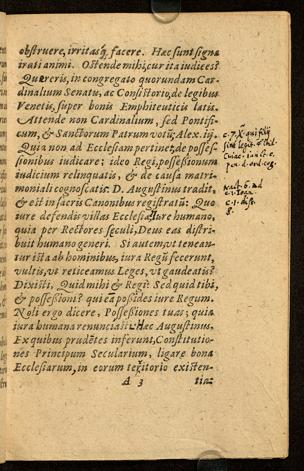 obstruere, irritasq́; facere. Hæc sunt signa
irati animi. Ostende mihi, cur ita iudices?
Quereris, in congregato quorundam Car-
dinalium Senatu, ac Consistorio, de legibus
Venetis, super bonis Emphiteuticis latis.
Attende non Cardinalium, sed Pontifi-
cum, & Sanctorum Patrum votũ. Alex. iij.
Quia non ad Ecclesiam pertinet, de posses-
sionibus iudicare; ideo Regi, possessionum
iudicium relinquatis, & de causa matri-
moniali cognoscatis: D. Augustinus tradit,
& est in sacris Canonibus registratũ: Quo
iure defendis villas Ecclesiæ? Iure humano,
quia per Rectores seculi, Deus eas distri-
buit humano generi. Si autem, vt tenean-
tur ista ab hominibus, iura Regũ fecerunt,
vultis, vt reticeamus Leges, vt gaudeatis?
Dixisti, Quid mihi & Regi? Sed quid tibi,
& possessioni? qui eã possides iure Regum.
Noli ergo dicere, Possessiones tuas; quia
iura humana renunciasti. Hæc Augustinus.
Ex quibus prudẽtes inferunt, Constitutio-
nes Principum Secularium, ligare bona
Ecclesiarum, in eorum territorio existen-
A 3 tia:
c. 7. X. qui filij
c. 1. dist.
8.